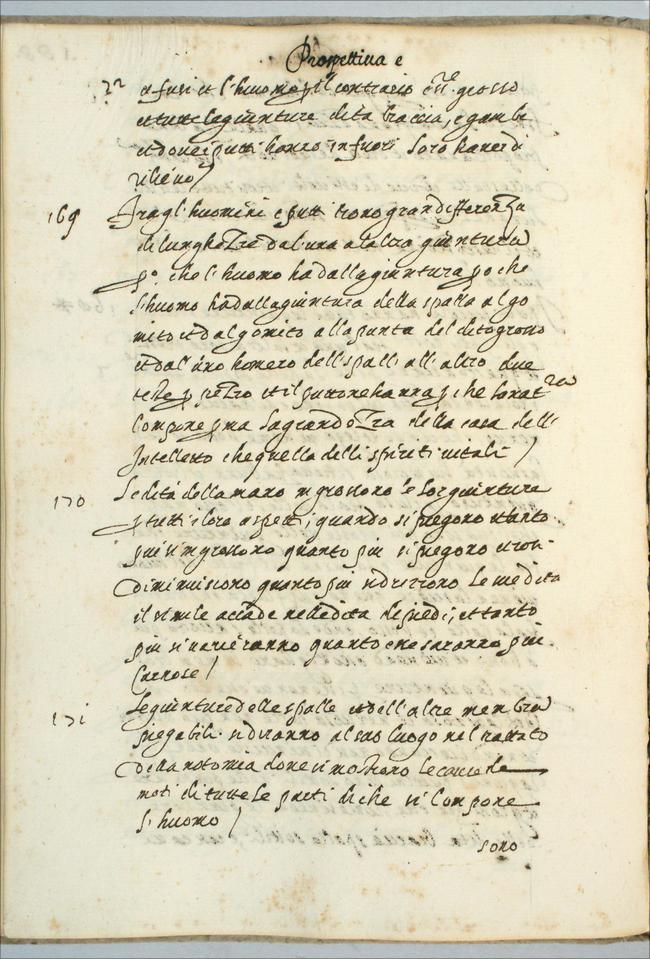 Prospettiua e
infusi et l'huomo p il contrario è nel grosso
et tutte le giunture di dita braccia, e gambe
et doue i putti hanno in fuori loro hanno di
rilieuo /
169 Fra gl'huomini e putti trouo gran differenza
di lunghezze dal'una a l'altra giuntura
po. che l'huomo ha dalla giuntura po che
l'huomo ha dalla giuntura della spalla al go
mito et dal gomito alla punta del dito grosso
et dal'uno homero dell spalli all'altro due
teste p pezzo et il putto ne ha una p che la natura
Compone p ma la grandezza della casa dell
Intelletto che quella delli spiriti uitali /
170 Le dita della mano ingrossono le lor giunture
p tutti i loro aspetti, quando si piegono et tanto
piu s'ingrossono quanto piu si piegono et cosi
Diminuiscono quanto piu si drizzono le medita
il simile accade nelle dita de piedi; et tanto
piu si varieranno quanto che saranno piu
Carnose /
171 Le giunture delle spalle et dell'altre membra
piegabili si diranno al suo luogo nel trattato
Della notomia doue si mostrono le cause de
moti di tutte le parti di che si Compone
l'huomo /
sono